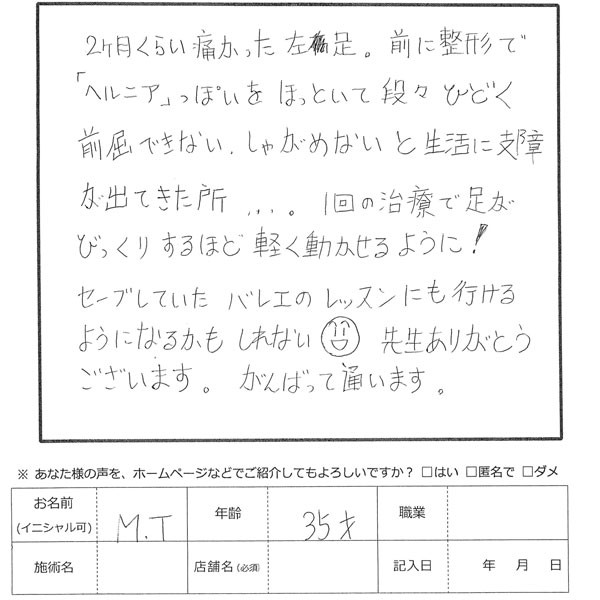 2ヶ月くらい痛かった左足。前に整形で
「ヘルニア」っぽいを ほっといて 段々 ひどく
前屈できない、しゃがめない と 生活に支障
が出てきた所 ....。 1回の治療で足が
びっくりするほど 軽く動かせるように!
セーブしていた バレエの レッスンにも行ける
ようになるかも しれない 先生ありがとう
ございます。 がんばって通います。
※ あなた様の声を、ホームページなどでご紹介してもよろしいですか? □はい □匿名で □ダメ
お名前 (イニシャル可) M.T 年齢 35才 職業
施術名 店舗名(必須) 記入日 年 月 日